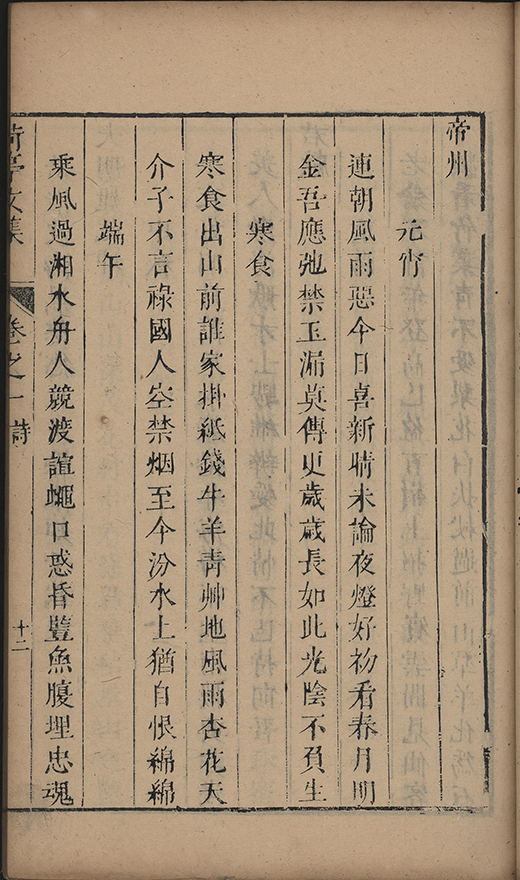 帝州
元宵
連朝風雨惡今日喜新晴未論夜燈好初看春月明
金吾應弛禁玉漏莫傳更歲歲長如此光陰不負生
寒食
寒食出山前誰家掛紙錢牛羊青艸地風雨杏花天
介子不言祿國人空禁烟至今汾水上猶自恨綿綿
端午
乘風過湘水舟人競渡諠蠅口惑昏豎魚腹埋忠魂
亭文集
卷之一詩
十二